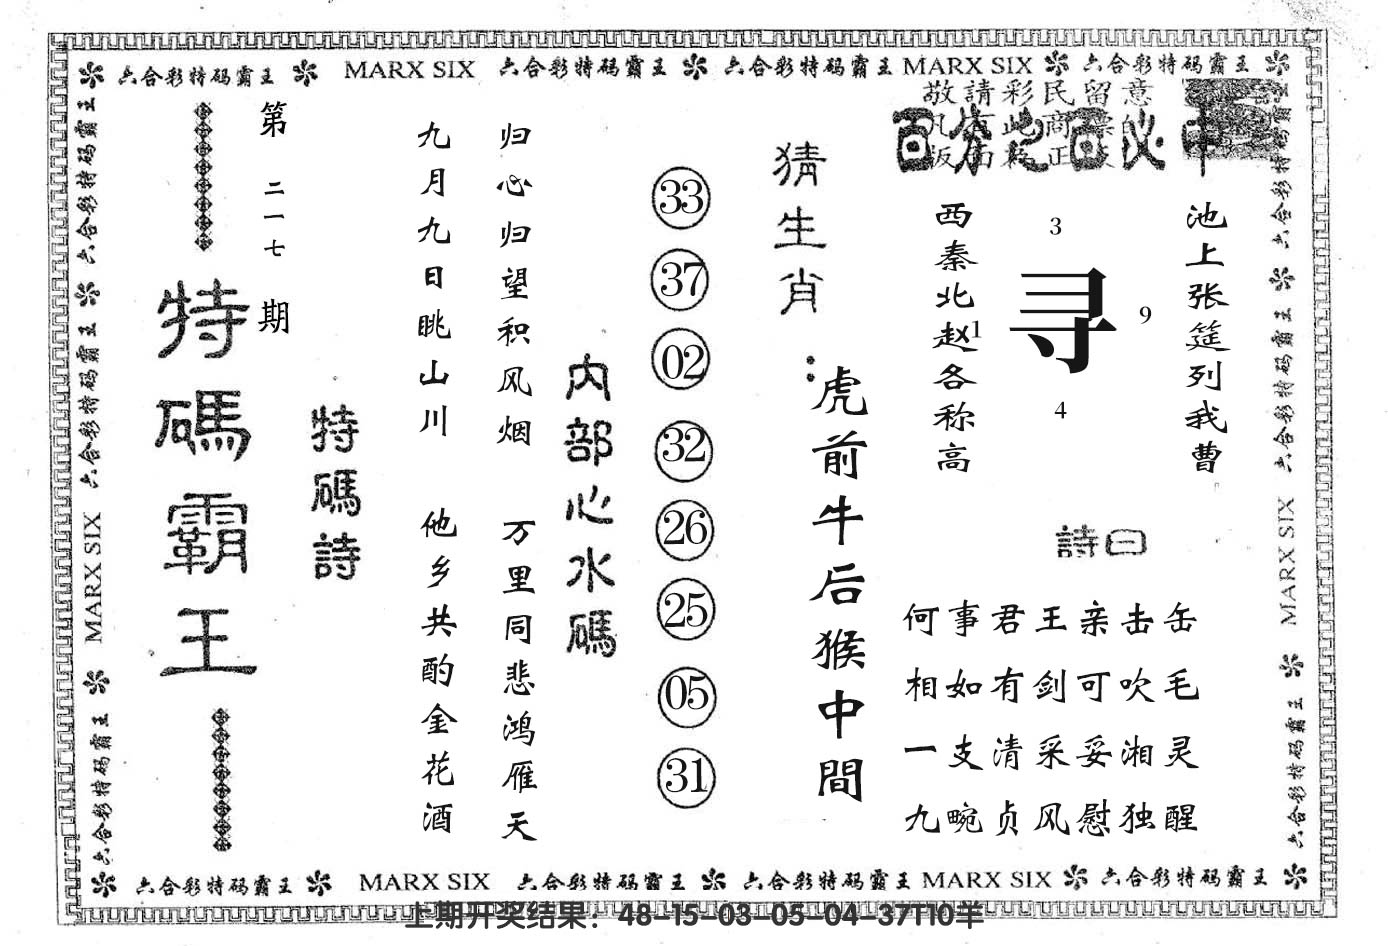 六合彩特码霸王 MARX SIX 六合彩特码霸王 六合彩特码霸王 MARX SIX 六合彩特码霸王
六合彩特码霸王 六合彩特码霸王 MARX SIX 六合彩特码霸王
第二一七期
特碼霸王
特碼詩
九月九日眺山川
归心归望积风烟
他乡共酌金花酒
万里同悲鸿雁天
内部心水碼
33
37
02
32
26
25
05
31
猜生肖:
虎前牛后猴中間
敬請彩民留意
百分之百必中
西秦北赵各称高
3
寻
1
9
4
池上张筵列我曹
詩曰
何事君王亲击缶
相如有剑可吹毛
一支清采妥湘灵
九畹贞风慰独醒
六合彩特码霸王 六合彩特码霸王 MARX SIX 六合彩特码霸王
六合彩特码霸王 MARX SIX 六合彩特码霸王 六合彩特码霸王 MARX SIX 六合彩特码霸王
上期开奖结果：48-15-03-05-04-37T10羊